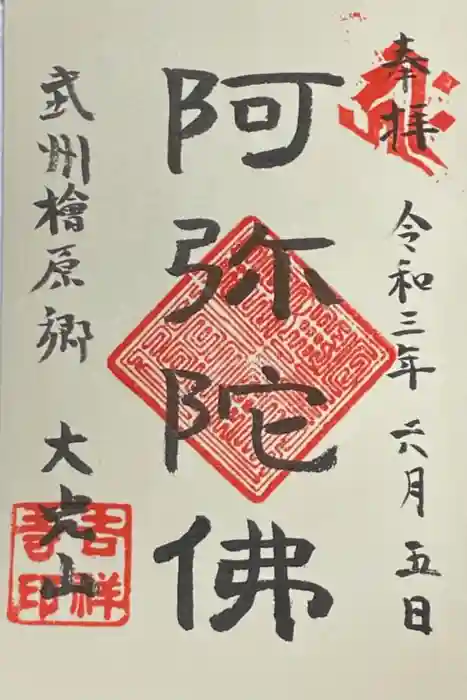 奉拝 令和三年 六月 五日
阿弥陀佛
武州檜原郷 大光山
吉祥
吉印